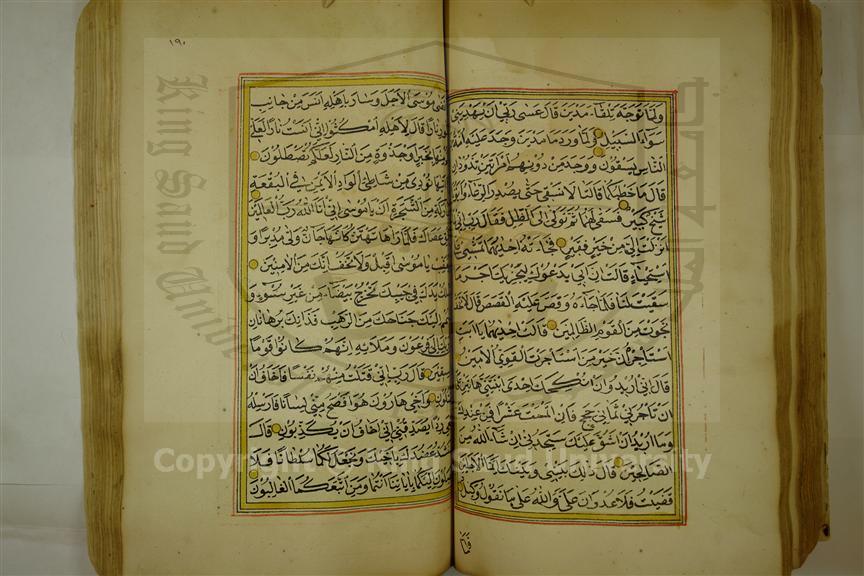 ولما توجه تلقاء مدين قال عسى ربي ان يهديني
سواء السبيل ولما ورد ماء مدين وجد عليه امة
الناس يسقون ووجد من دونهم امرأتين تذودان
قال ما خطبكما قالتا لا نسقي حتى يصدر الرعاء وابونا
شيخ كبير فسقى لهما ثم تولى الى الظل فقال رب اني
انزلت الي من خير فقير فجاءته احديهما تمشي
استحياء قالت ان ابي يدعوك ليجزيك اجر
سقيت لنا فلما جاءه وقص عليه القصص قال لا تخف
نجوت من القوم الظالمين قالت احديهما يا ابت
استأجره ان خير من استأجرت القوي الامين
قال اني اريد ان انكحك احدى ابنتي هاتين
ان تأجرني ثماني حجج فان اتممت عشرا فمن عندك
وما اريد ان اشق عليك ستجدني ان شاء الله من
الصالحين قال ذلك بيني وبينك ايما الاجلين
قضيت فلا عدوان علي والله على ما نقول وكيل
فلما
١٩٠
قضى موسى الاجل وسار باهله انس من جانب
نارا قال لاهله امكثوا اني انست نارا لعلي
بخبر او جذوة من النار لعلكم تصطلون
اتيها نودي من شاطئ الواد الايمن في البقعة
من الشجرة ان يا موسى اني انا الله رب العالمين
عصاك فلما راها تهتز كانها جان ولى مدبرا و
يا موسى اقبل ولا تخف انك من الامنين
يدك في جيبك تخرج بيضاء من غير سوء و
اليك جناحك من الرهب فذانك برهانان
الى فرعون وملائه انهم كانوا قوما
قال رب اني قتلت منهم نفسا فاخاف ان
واخي هارون هو افصح مني لسانا فارسله
يصدقني اني اخاف ان يكذبون قال
عضدك باخيك ونجعل لكما سلطانا فلا
اليكما باياتنا انتما ومن اتبعكما الغالبون
Copyright © King Saud University
King Saud University